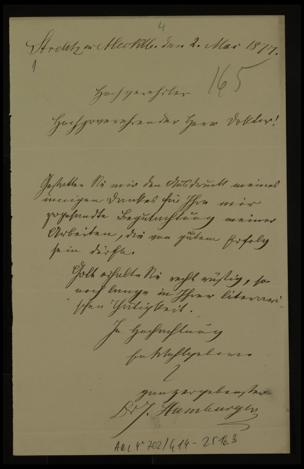 4
Strelitz in Mecklb. den 2. Mai 1877.
165
Hochgeehrter
Hochzuverehrender Herr Doktor!
Gestatten Sie mir den Ausdruck meines
innigen Dankes für Ihre mir
zugesandte Begutachtung meiner
Arbeiten, die von gutem Erfolg
sein dürfte.
Gott erhalte Sie recht rüstig, so
noch lange in Ihrer literari-
schen Tätigkeit.
In Hochachtung
Ew Wohlgeboren
ganz ergebenster
Dr J. Hamburger